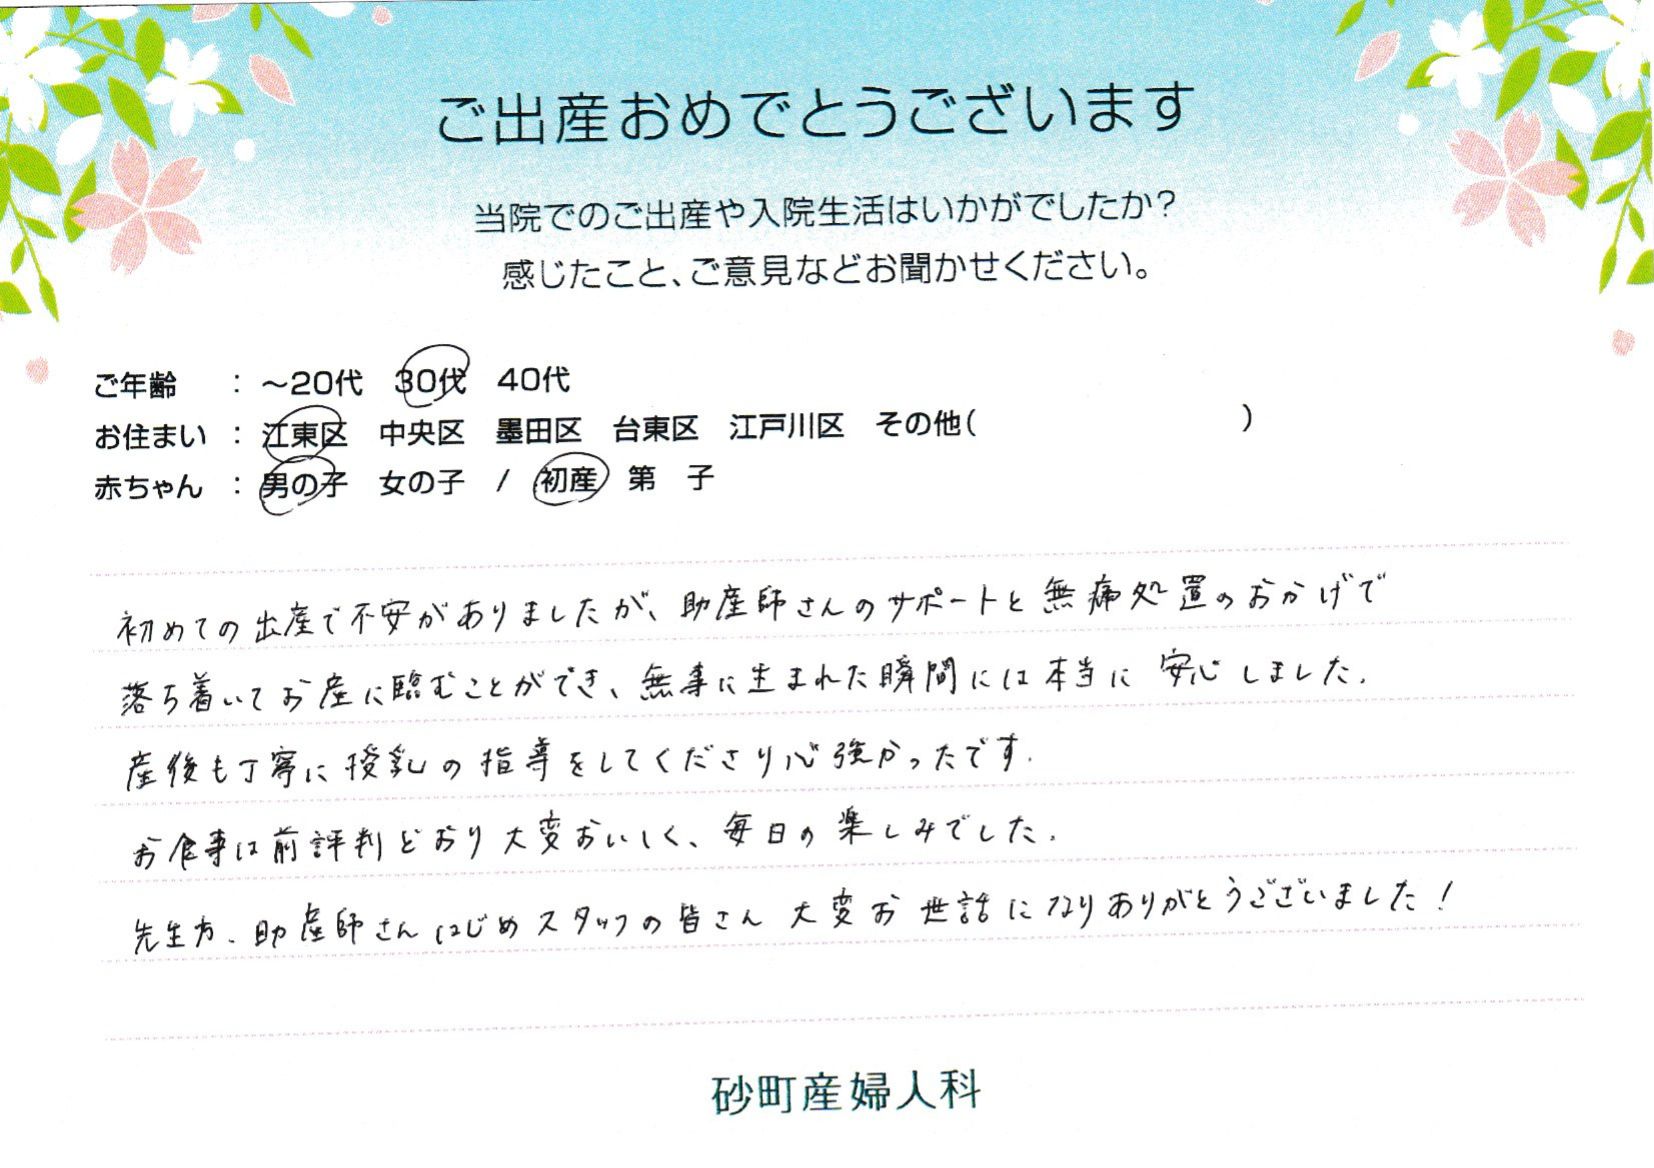 ご出産おめでとうございます
当院でのご出産や入院生活はいかがでしたか?
感じたこと、ご意見などお聞かせください。
ご年齢 : ～20代 30代 40代
お住まい : 江東区 中央区 墨田区 台東区 江戸川区 その他( )
赤ちゃん : 男の子 女の子 / 初産 第 子
初めての出産で不安がありましたが、助産師さんのサポートと無痛処置のおかげで
落ち着いてお産に臨むことができ、無事に生まれた瞬間には本当に安心しました。
産後も丁寧に授乳の指導をしてくださり心強かったです。
お食事は前評判どおり大変おいしく、毎日の楽しみでした。
先生方、助産師さんはじめスタッフの皆さん大変お世話になりありがとうございました!
砂町産婦人科